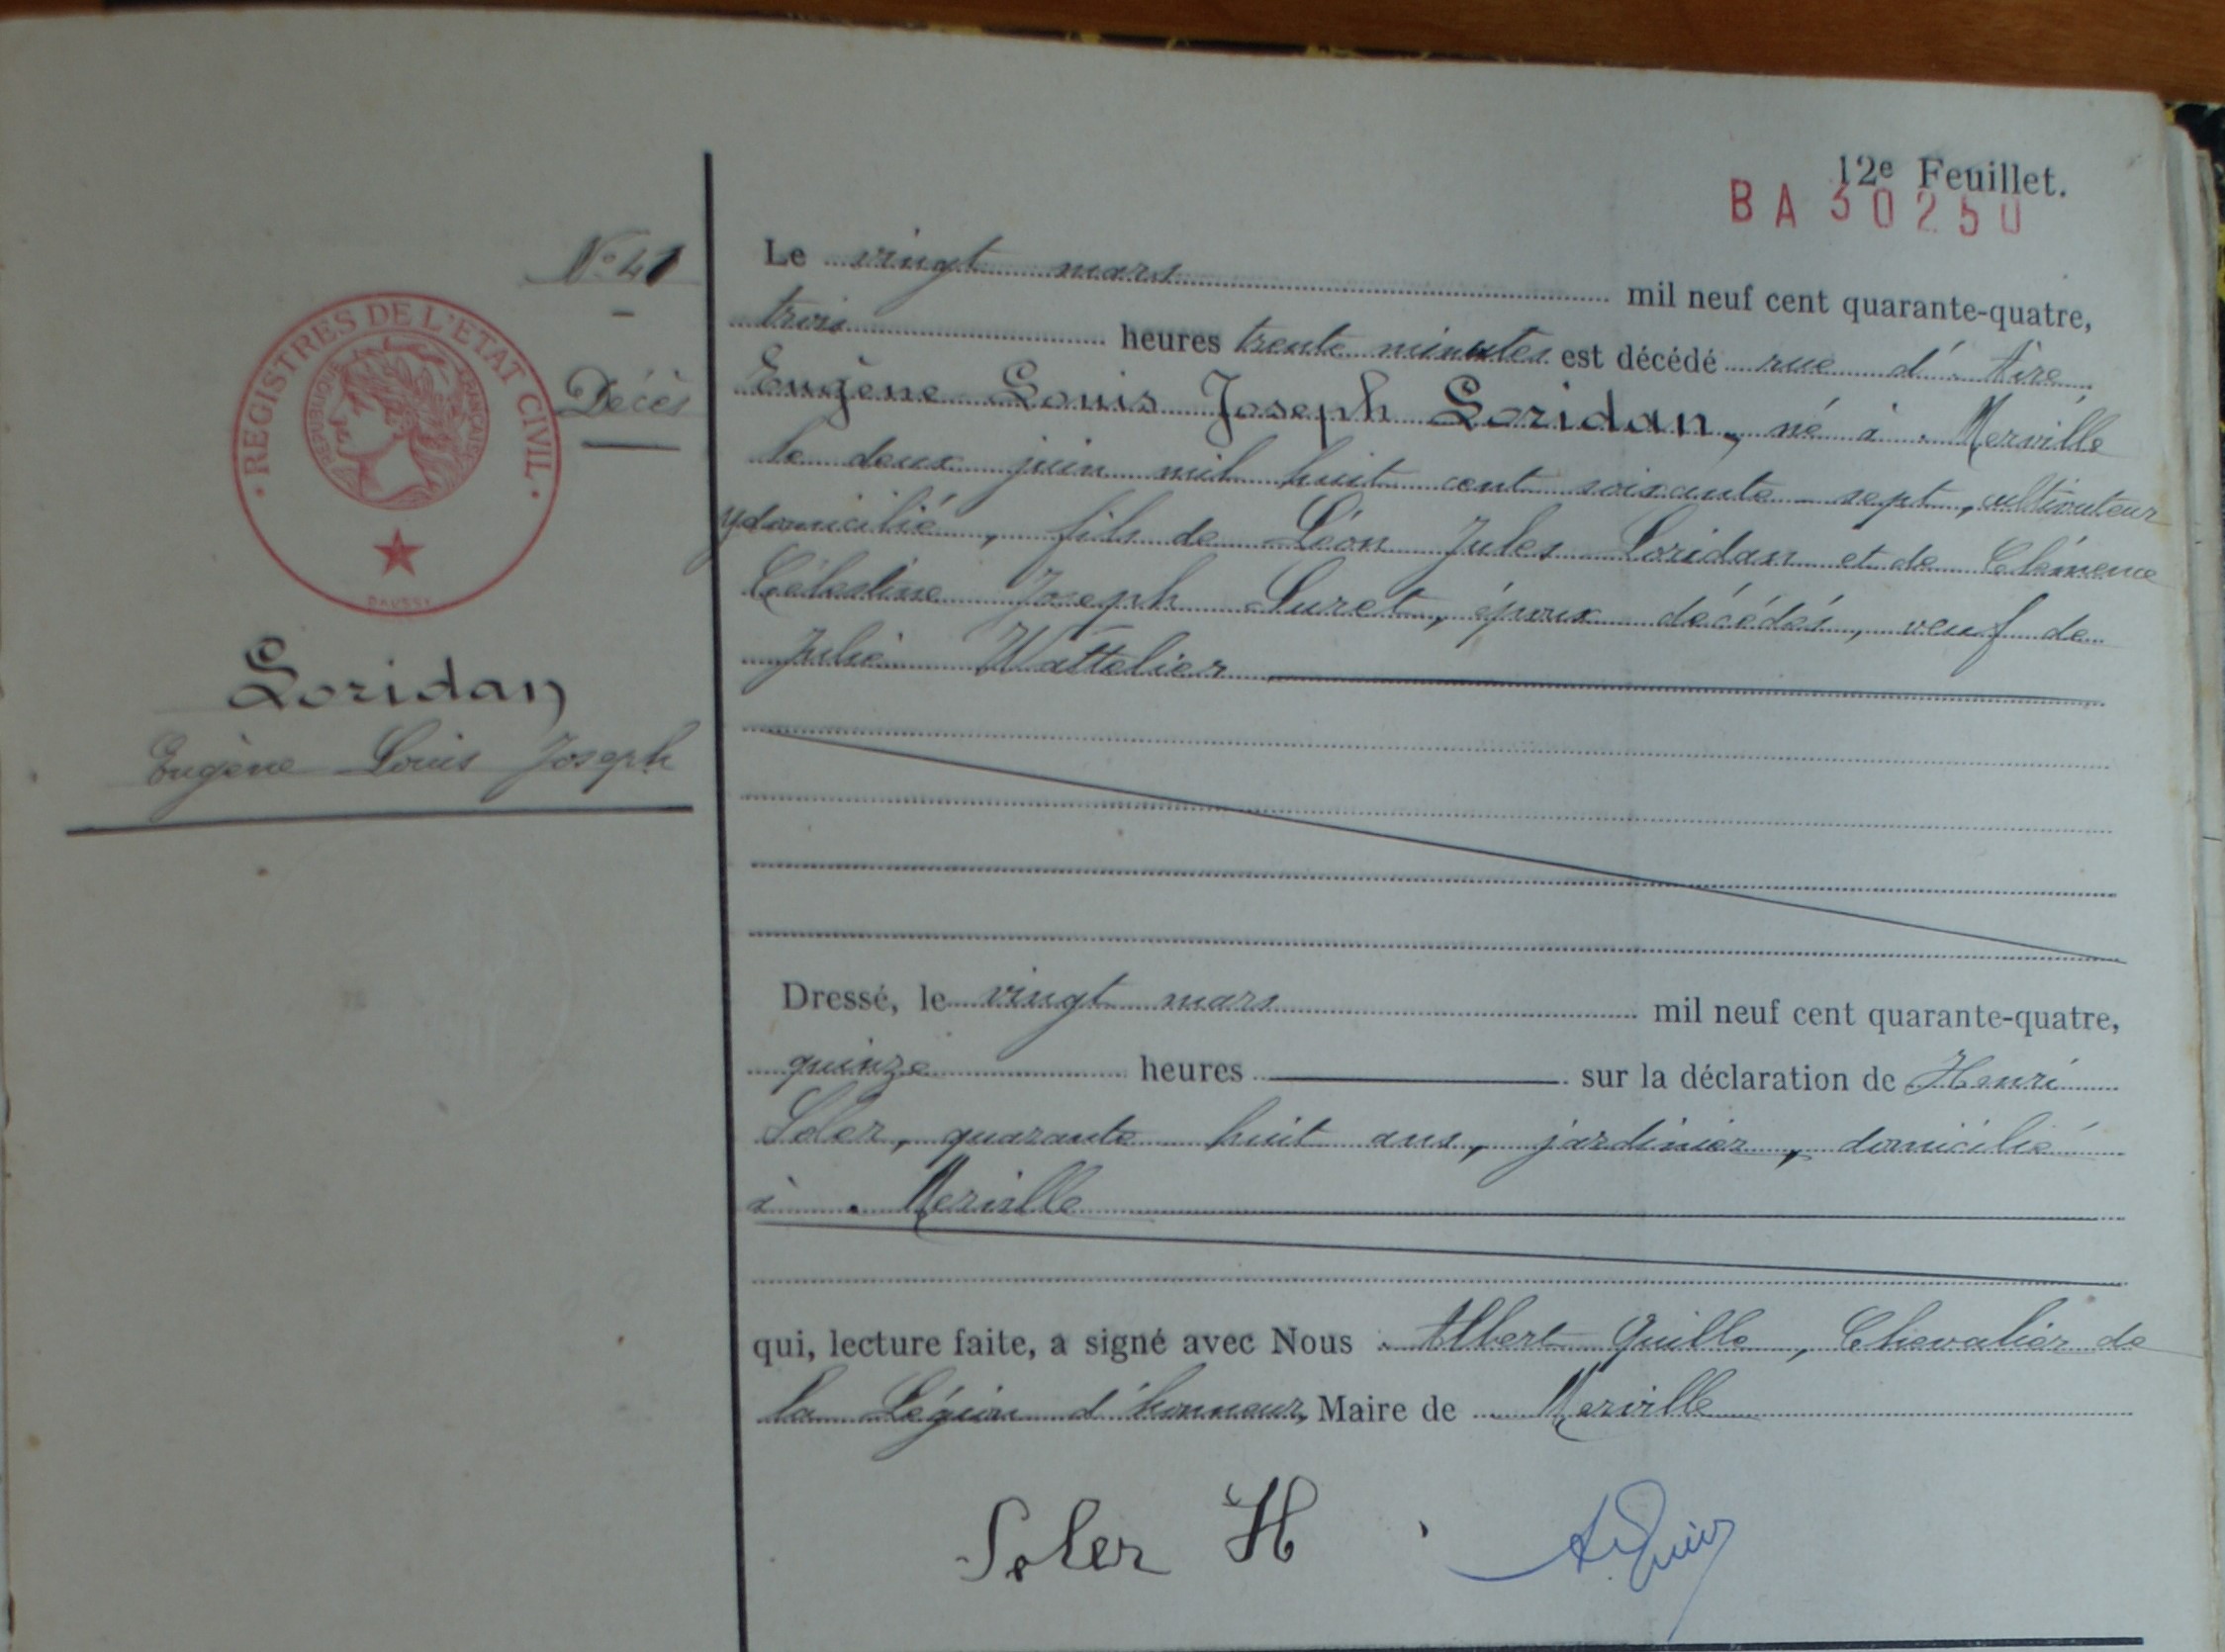 12e Feuillet.
BA 30250
N° 41
Décès
REGISTRES DE L'ÉTAT CIVIL
RÉPUBLIQUE FRANÇAISE
DAUSSY
Loridan
Eugène Louis Joseph
Le vingt mars mil neuf cent quarante-quatre,
trois heures trente minutes est décédé rue d'Aire,
Eugène Louis Joseph Loridan, né à Merville
le deux juin mil huit cent soixante-sept, cultivateur
y domicilié, fils de Léon Jules Loridan et de Clémence
Célestine Joseph Suret, époux décédés, veuf de
Julie Wattelier
Dressé, le vingt mars mil neuf cent quarante-quatre,
quinze heures sur la déclaration de Henri
Soler, quarante huit ans, jardinier, domicilié
à Merville
qui, lecture faite, a signé avec Nous Albert Quille, Chevalier de
la Légion d'honneur, Maire de Merville
Soler H